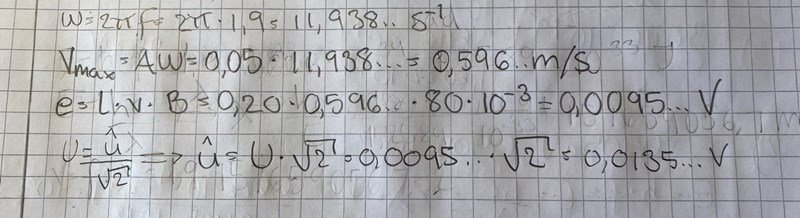 ω = 2πf = 2π · 1,9 = 11,938.. s⁻¹
Vmax = Aω = 0,05 · 11,938... = 0,596.. m/s
e = l · v · B = 0,20 · 0,596... · 80 · 10⁻³ = 0,0095... V
U = û/√2 => û = U · √2 = 0,0095... · √2 = 0,0135... V